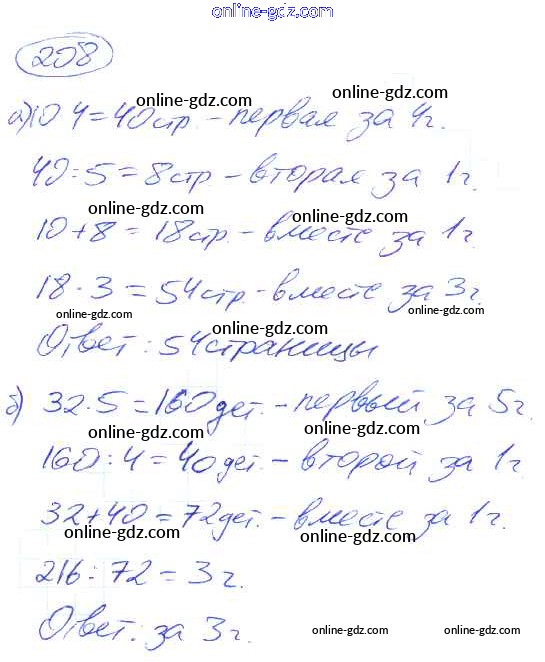 online-gdz.com
208
online-gdz.com online-gdz.com
а) 10 4 = 40 стр. - первая за 4 г.
online-gdz.com
40 : 5 = 8 стр - вторая за 1 г.
online-gdz.com online-gdz.com
10 + 8 = 18 стр. - вместе за 1 г.
online-gdz.com
18 · 3 = 54 стр. - вместе за 3 г.
online-gdz.com online-gdz.com
Ответ : 54 страницы
online-gdz.com
б) 32 · 5 = 160 дет. - первый за 5 г.
online-gdz.com online-gdz.com
160 : 4 = 40 дет. - второй за 1 г.
online-gdz.com
32 + 40 = 72 дет. - вместе за 1 г.
online-gdz.com online-gdz.com
216 : 72 = 3 г.
online-gdz.com
Ответ: за 3 г.
online-gdz.com online-gdz.com